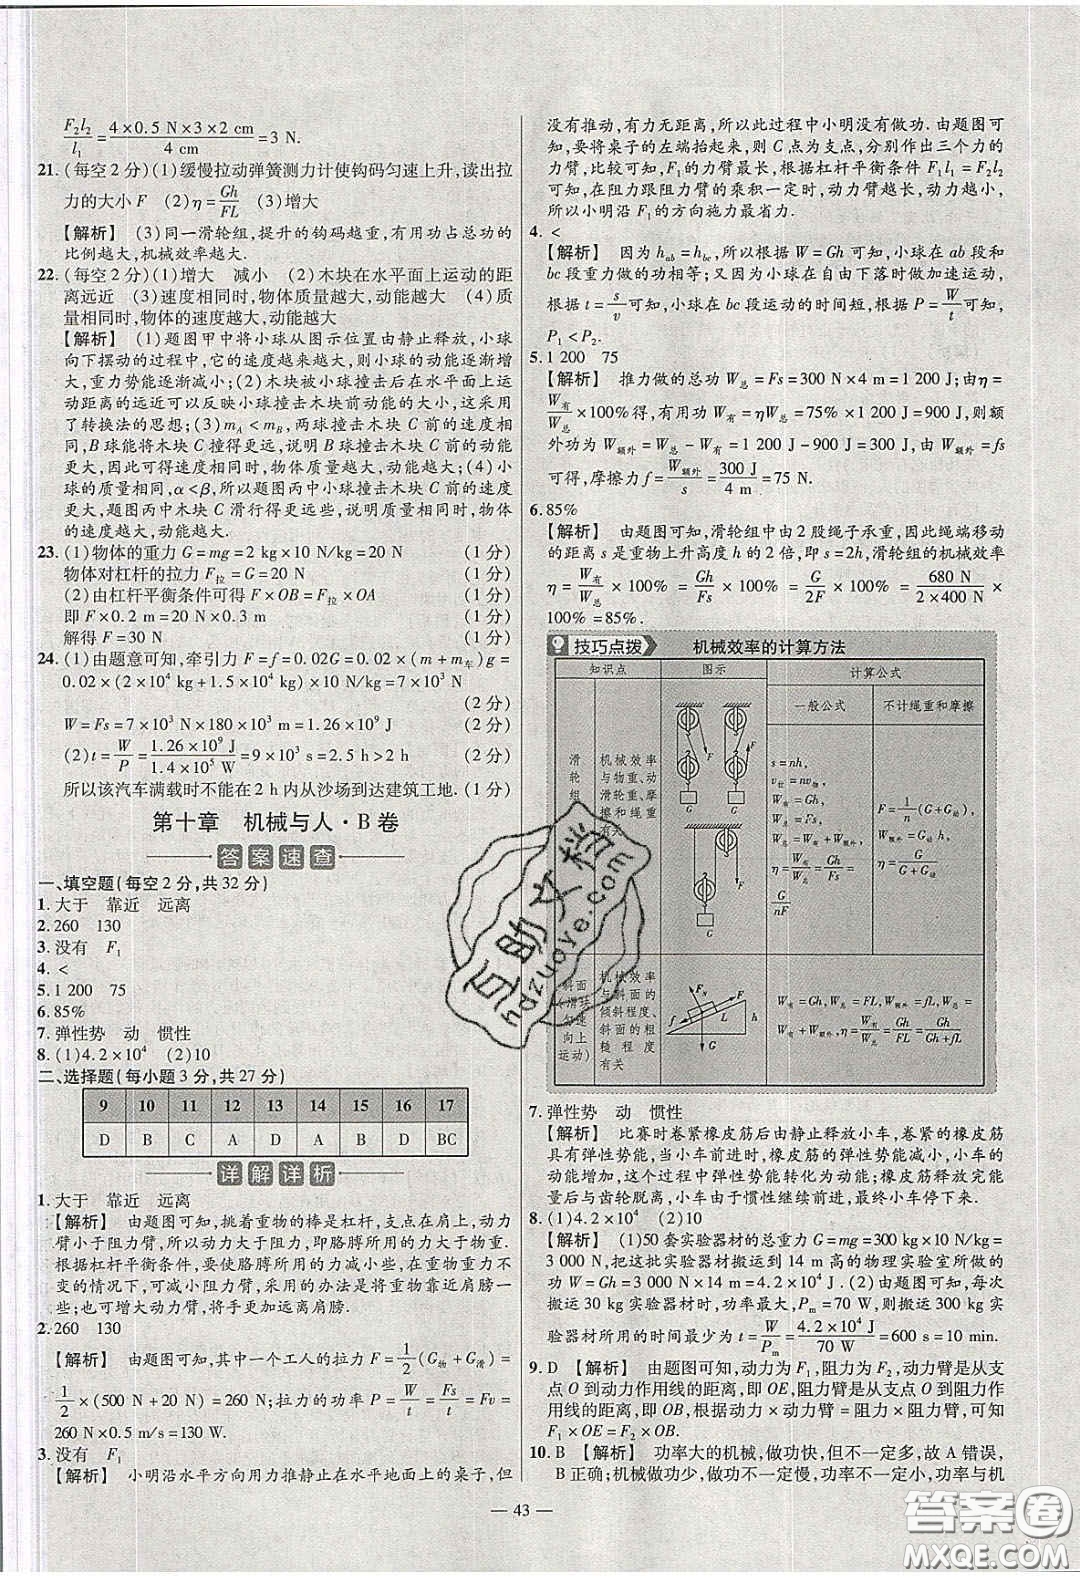 F₂l₂/l₁ = (4×0.5 N×3×2 cm)/(4 cm) = 3 N.
21.(每空2分)(1)缓慢拉动弹簧测力计使钩码匀速上升,读出拉
力的大小 F (2)η=Gh/FL (3)增大
【解析】 (3)同一滑轮组,提升的钩码越重,有用功占总功的
比例越大,机械效率越大.
22.(每空2分)(1)增大 减小 (2)木块在水平面上运动的距
离远近 (3)速度相同时,物体质量越大,动能越大 (4)质
量相同时,物体的速度越大,动能越大
【解析】 (1)题图甲中将小球从图示位置由静止释放,小球
向下摆动的过程中,它的速度越来越大,则小球的动能逐渐增
大,重力势能逐渐减小;(2)木块被小球撞击后在水平面上运
动距离的远近可以反映小球撞击木块前动能的大小,这采用
了转换法的思想;(3)m_A<m_B,两球撞击木块C前的速度相
同,B球能将木块C撞得更远,说明B球撞击木块C前的动能
更大,因此得出:速度相同时,物体质量越大,动能越大;(4)小
球的质量相同,α<β,所以题图丙中小球撞击木块C前的速度
更大,题图丙中木块C滑行得更远些,说明质量相同时,物体
的速度越大,动能越大.
23.(1)物体的重力 G=mg=2 kg×10 N/kg=20 N (1分)
物体对杠杆的拉力 F拉=G=20 N (1分)
(2)由杠杆平衡条件可得 F×OB=F拉×OA (1分)
即 F×0.2 m=20 N×0.3 m (1分)
解得 F=30 N (1分)
24.(1)由题意可知,牵引力 F=f=0.02G=0.02×(m+m车)g=
0.02×(2×10⁴ kg+1.5×10⁴ kg)×10 N/kg=7×10³ N
(2分)
W=Fs=7×10³ N×180×10³ m=1.26×10⁹ J (2分)
(2)t=W/P=(1.26×10⁹ J)/(1.4×10⁵ W)=9×10³ s=2.5 h>2 h (2分)
所以该汽车满载时不能在2 h内从沙场到达建筑工地.(1分)
第十章 机械与人·B卷
答案速查
一、填空题(每空2分,共32分)
1.大于 靠近 远离
2.260 130
3.没有 F₁
4.<
5.1 200 75
6.85%
7.弹性势 动 惯性
8.(1)4.2×10⁴ (2)10
二、选择题(每小题3分,共27分)
9 10 11 12 13 14 15 16 17
D B C A D A D D BC
详解详析
1.大于 靠近 远离
【解析】 由题图可知,挑着重物的棒是杠杆,支点在肩上,动力
臂小于阻力臂,所以动力大于阻力,即胳膊所用的力大于物重.
根据杠杆平衡条件,要使胳膊所用的力减小些,在重物重力不
变的情况下,可减小阻力臂,采用的办法是将重物靠近肩膀一
些;也可增大动力臂,将手更加远离肩膀.
2.260 130
【解析】 由题图可知,其中一个工人的拉力 F=1/2(G物+G滑)=
1/2×(500 N+20 N)=260 N;拉力的功率 P=W/t=Fs/t=Fv=
260 N×0.5 m/s=130 W.
3.没有 F₁
【解析】 小明沿水平方向用力推静止在水平地面上的桌子,但
没有推动,有力无距离,所以此过程中小明没有做功.由题图可
知,要将桌子的左端抬起来,则C点为支点,分别作出三个力的
力臂,比较可知,F₁的力臂最长,根据杠杆平衡条件 F₁l₁=F₂l₂
可知,在阻力跟阻力臂的乘积一定时,动力臂越长,动力越小,
所以小明沿F₁的方向施力最省力.
4.<
【解析】 因为h_ab=h_bc,所以根据W=Gh可知,小球在ab段和
bc段重力做的功相等;又因为小球在自由下落时做加速运动,
根据t=s/v可知,小球在bc段运动的时间短,根据P=W/t可知,
P₁<P₂.
5.1 200 75
【解析】 推力做的总功W总=Fs=300 N×4 m=1 200 J;由η=
W有/W总×100%得,有用功W有=ηW总=75%×1 200 J=900 J,则额
外功为W额外=W总-W有=1 200 J-900 J=300 J,由W额外=fs
可得,摩擦力f=W额外/s=300 J/4 m=75 N.
6.85%
【解析】 由题图可知,滑轮组中由2股绳子承重,因此绳端移动
的距离s是重物上升高度h的2倍,即s=2h,滑轮组的机械效率
η=W有/W总×100%=Gh/Fs×100%=G/2F×100%=680 N/(2×400 N)×
100%=85%.
技巧点拨 机械效率的计算方法
知识点 图示 计算公式
一般公式 不计绳重和摩擦
滑轮组
机械效率与物重、动滑轮重、摩擦和绳重有关
F F F G G G
s=nh,
v绳=nv物,
W有=Gh,
W总=Fs,
W总=W有+W额外
η=W有/W总=Gh/Fs=
G/nF
F=1/n(G+G动)
W额外=G动h,
η=G/(G+G动)
斜面(滑块匀速向上运动)
机械效率与斜面的倾斜程度、斜面的粗糙程度有关
F_N F f L h G
W有=Gh,W总=FL,W额外=fL,W总=
W有+W额外,η=W有/W总=Gh/FL=Gh/(Gh+fL)
7.弹性势 动 惯性
【解析】 比赛时卷紧橡皮筋后由静止释放小车,卷紧的橡皮筋
具有弹性势能,当小车前进时,橡皮筋的弹性势能减小,小车的
动能增加,这一过程中弹性势能转化为动能.橡皮筋释放完能
量后与齿轮脱离,小车由于惯性继续前进,最终小车停下来.
8.(1)4.2×10⁴ (2)10
【解析】 (1)50套实验器材的总重力G=mg=300 kg×10 N/kg=
3 000 N,把这批实验器材搬运到14 m高的物理实验室所做的
功W=Gh=3 000 N×14 m=4.2×10⁴ J.(2)由题图可知,每次
搬运30 kg实验器材时,功率最大,Pm=70 W,所以搬运这些实
验器材所用的时间最少为t=W/Pm=(4.2×10⁴ J)/(70 W)=600 s=10 min.
9.D 【解析】 由题图可知,动力为F₁,阻力为F₂,动力臂是从支
点O到动力作用线的距离,即OE,阻力臂是从支点O到阻力作
用线的距离,即OB,根据动力×动力臂=阻力×阻力臂,可知
F₁×OE=F₂×OB.
10.B 【解析】 功率大的机械,做功快,但不一定多,故A错误,
B正确;机械做功少,做功不一定慢,功率不一定小,功率与机
— 43 —
自助文档
zizhuwendang
答案圈
MXQE.COM